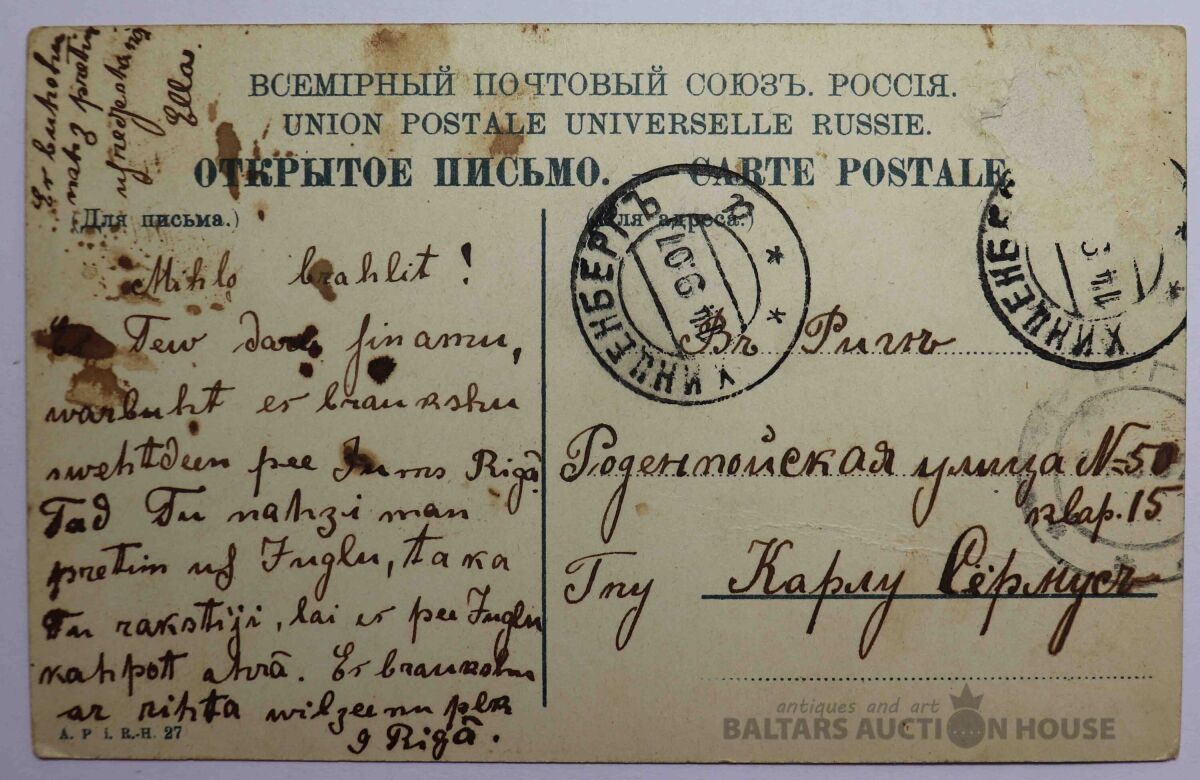 ВСЕМІРНЫЙ ПОЧТОВЫЙ СОЮЗЪ. РОССІЯ.
UNION POSTALE UNIVERSELLE RUSSIE.
ОТКРЫТОЕ ПИСЬМО. - CARTE POSTALE.
(Для письма.)
(Для адреса.)
Es buhschu
nahz pretim
Ella.
Mihlo brahlit!
Tew daru sinamu,
warbuht es braukshu
swehtdeen pee Jums Rigā.
Tad Tu nahzi man
pretim us Juglu, ta ka
Tu rakstiji, lai es pee Juglu
kahpott ahrā. Es braukshu
ar rihta wilzeenu plk
9 Rigā.
A. P i. R.-H. 27
ХИНЦЕНБЕРГЪ
9.07
ХИНЦЕНБЕР
Въ Ригѣ
Роденпойская улица №50
квар. 15
Гну Карлу Сёрмусъ
antiques and art
BALTARS AUCTION HOUSE